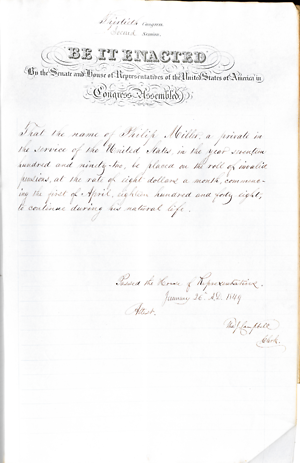 Thirtieth Congress
Second Session
BE IT ENACTED
By the Senate and House of Representatives of the United States of America in
Congress Assembled
That the name of Philip Miller, a private in
the service of the United States, in the year seventeen
hundred and ninety-two, be placed on the roll of invalid
pensions, at the rate of eight dollars a month, commenc-
ing the first of April, eighteen hundred and forty eight;
to continue during his natural life.
Passed the House of Representatives
January 26 A.D. 1849
Attest.
Campbell
Clerk